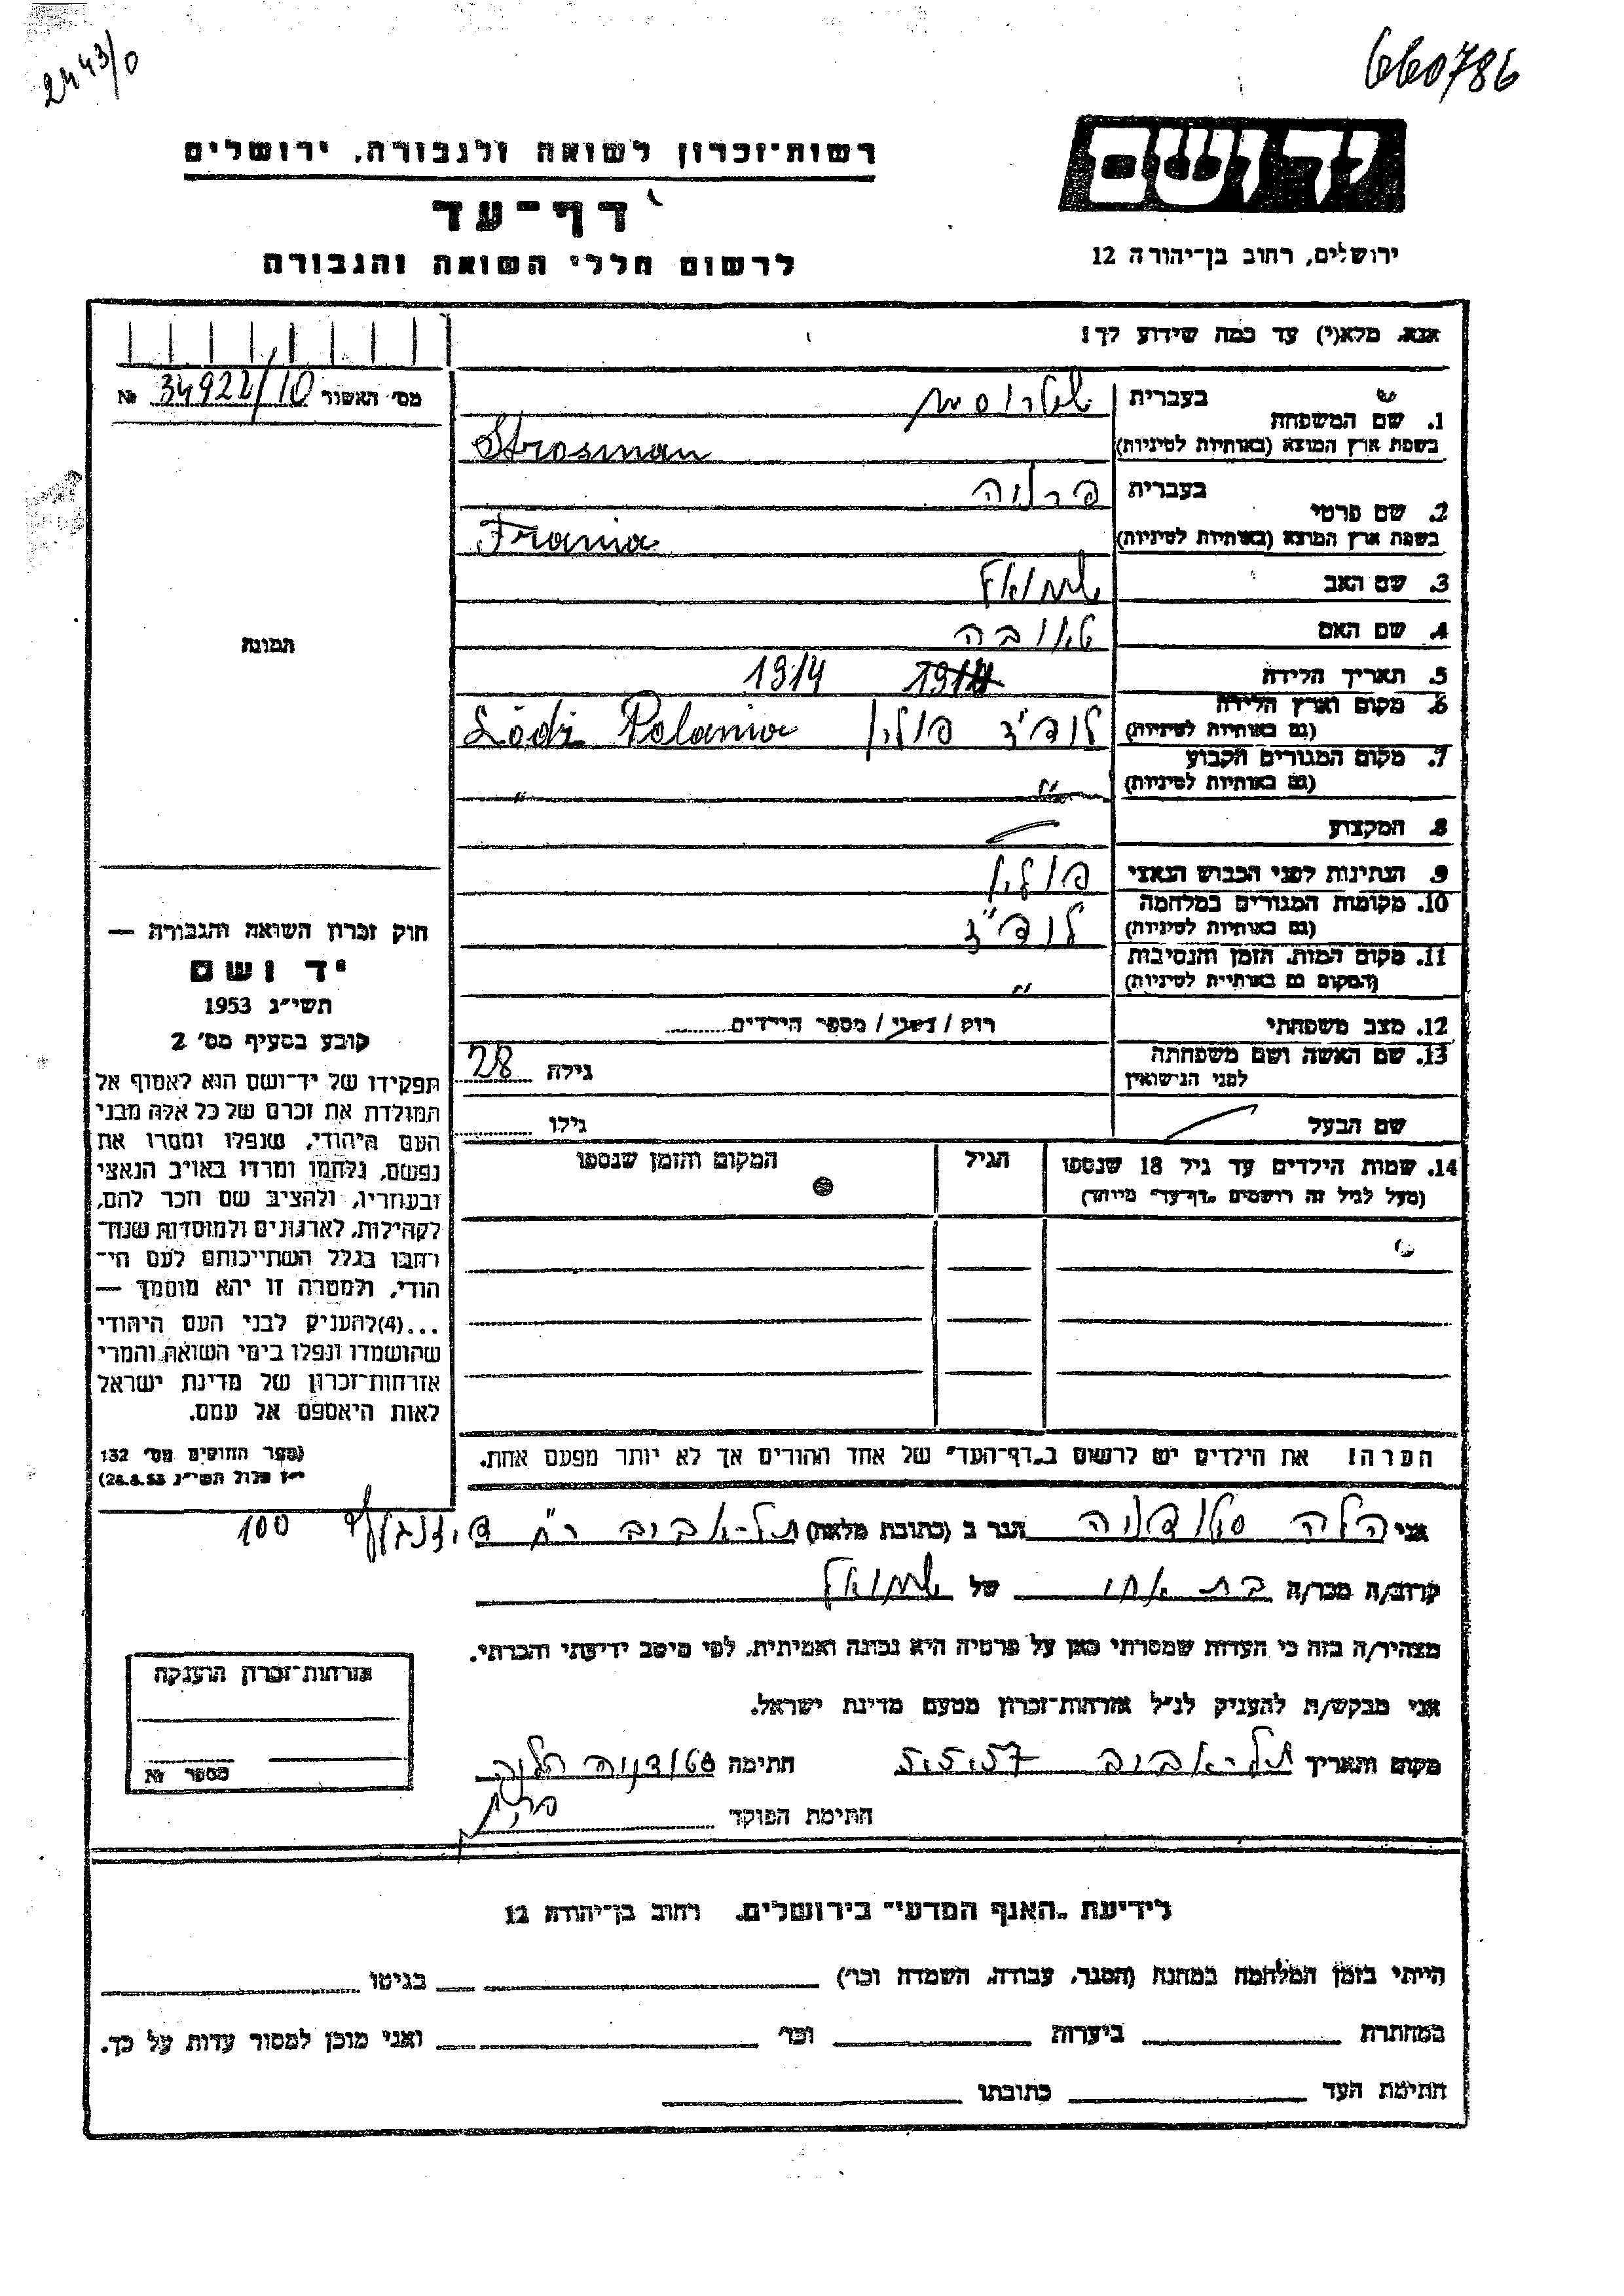 2443/0
660786
יד ושם
ירושלים, רחוב בן־יהודה 12
רשות־זכרון לשואה ולגבורה, ירושלים
דף־עד
לרשום חללי השואה והגבורה
אנא, מלא(י) עד כמה שידוע לך!
מס׳ האשור 34922/10 №
1. שם המשפחה
בעברית
בשפת ארץ המוצא (באותיות לטיניות) Strosman
2. שם פרטי
בעברית פרניה
בשפת ארץ המוצא (באותיות לטיניות) Frania
3. שם האב שמואל
4. שם האם טאובה
5. תאריך הלידה 1914
6. מקום וארץ הלידה
(גם באותיות לטיניות) לודז׳ פולין Lódź Polania
7. מקום המגורים הקבוע
(גם באותיות לטיניות) ״ ״
8. המקצוע
9. הנתינות לפני הכבוש הנאצי פולין
10. מקומות המגורים במלחמה
(גם באותיות לטיניות) לודז׳
11. מקום המות, הזמן והנסיבות
(המקום גם באותיות לטיניות) ״
12. מצב משפחתי רוק / נשוי / מספר הילדים
13. שם האשה ושם משפחתה
לפני הנישואין גילה 28
שם הבעל גילו
14. שמות הילדים עד גיל 18 שנספו
(מעל לגיל זה רושמים „דף־עד״ מיוחד)
הגיל
המקום והזמן שנספו
הערה! את הילדים יש לרשום ב„דף־העד״ של אחד ההורים אך לא יותר מפעם אחת.
התמונה
חוק זכרון השואה והגבורה —
יד ושם
תשי״ג 1953
קובע בסעיף מס׳ 2
תפקידו של יד־ושם הוא לאסוף אל
המולדת את זכרם של כל אלה מבני
העם היהודי, שנפלו ומסרו את
נפשם, נלחמו ומרדו באויב הנאצי
ובעוזריו, ולהציב שם וזכר להם,
לקהילות, לארגונים ולמוסדות שנח־
רבו בגלל השתייכותם לעם הי־
הודי, ולמטרה זו יהא מוסמך —
...(4)להעניק לבני העם היהודי
שהושמדו ונפלו בימי השואה והמרי
אזרחות־זכרון של מדינת ישראל
לאות היאספם אל עמם.
(ספר החוקים מס׳ 132
י״ז אלול תשי״ג 28.8.53)
אני הלה הגר ב (כתובת מלאה) תל־אביב רח׳ דיזנגוף 100
קרוב/ה מכר/ה בת אחי של שמואל
מצהיר/ה בזה כי העדות שמסרתי כאן על פרטיה היא נכונה ואמיתית, לפי מיטב ידיעתי והכרתי.
אני מבקש/ת להעניק לנ״ל אזרחות־זכרון מטעם מדינת ישראל.
מקום ותאריך תל־אביב 5.5.57 חתימה
חתימת הפוקד
אזרחות־זכרון הוענקה
מספר №
לידיעת „האגף המדעי״ בירושלים, רחוב בן־יהודה 12
הייתי בזמן המלחמה במחנה (הסגר, עבודה, השמדה וכו׳) בגיטו
במחתרת ביערות וכו׳ ואני מוכן למסור עדות על כך.
חתימת העד כתובתו